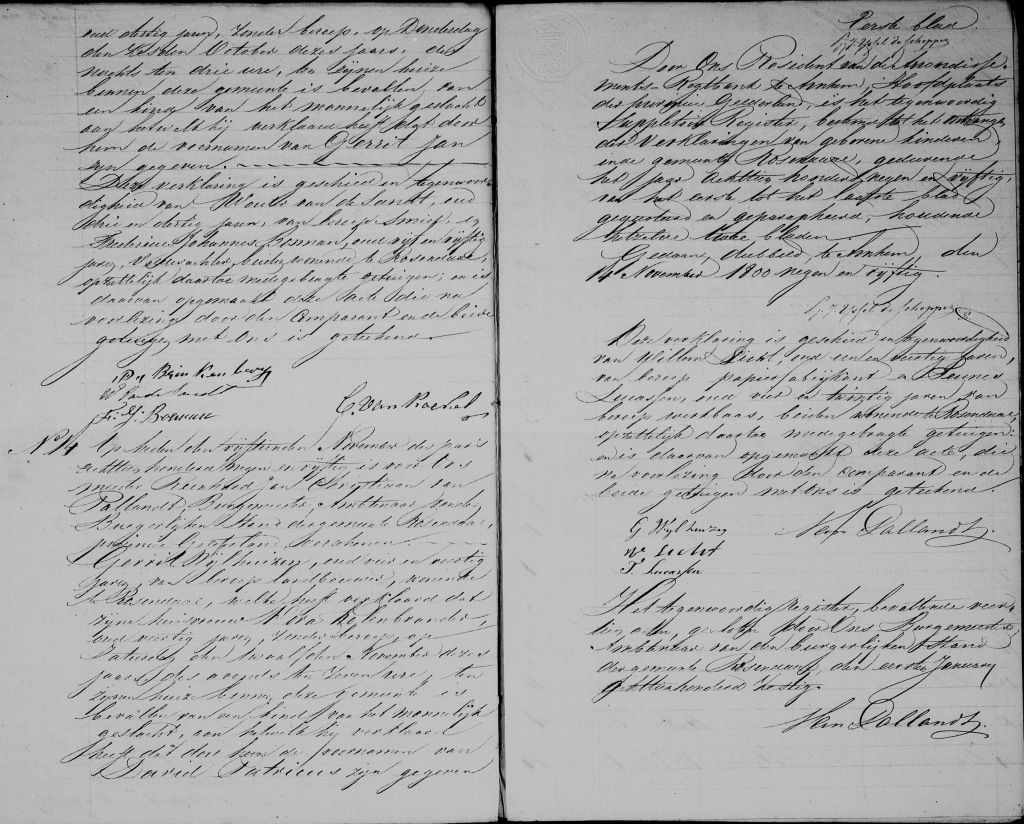 oud dertig jaren, zonder beroep, op Donderdag
den October dezes jaars, des
nachts ten drie ure, ten zijnen huize
binnen deze gemeente is bevallen van
een kind van het mannelijk geslacht
aan hetwelk hij verklaard heeft dat door
hem de voornamen van Gerrit Jan
zijn gegeven.
Deze verklaring is geschied in tegenwoor-
digheid van Wouter van de Sandt, oud
drie en dertig jaren, van beroep Smid, en
Fredericus Johannes Bosman, oud vijf en vijftig
jaren, Veldwachter, beiden wonende te Rosendaal,
opzettelijk daartoe medegebragte getuigen; en is
daarvan opgemaakt deze acte, die na
voorlezing door den Comparant en de beide
getuigen, met Ons is geteekend.
W van de Sandt
Fr. J. Bosman
No 14 Op heden den vijftienden November des jaars
achttien honderd negen en vijftig, is voor Ons
meester Reinhard Jan Christiaan van
Pallandt Burgemeester Ambtenaar van den
Burgerlijken Stand der gemeente Rosendaal,
provincie Gelderland, verschenen:
Gerrit Wijlhuizen, oud vier en veertig
jaren, van beroep landbouwer, wonende
te Rosendaal, welke heeft verklaard dat
zijne huisvrouw
oud veertig jaren, zonder beroep, op
Saturdag den twaalfden November dezes
jaars, des avonds ten zeven ure, ten
zijnen huize binnen deze gemeente is
bevallen van een kind van het mannelijk
geslacht, aan hetwelk hij verklaard
heeft dat door hem de voornamen van
David Patricus zijn gegeven
Eerste blad.
Door Ons President van de arrondisse-
ments Regtbank te Arnhem, Hoofdplaats
der provincie Gelderland, is het tegenwoordig
Suppletoir Register, bestemd tot het ontvangen
der verklaringen van geboren kinderen
in de gemeente Rosendaal, gedurende
het jaar achttien honderd negen en vijftig,
van het eerste tot het laatste blad
gequoteerd en geparapheerd, houdende
hetzelve twee bladen.
Gedaan, dubbeld, te Arnhem, den
November 1800 negen en vijftig.
Deze verklaring is geschied in tegenwoordigheid
van Willem Licht, oud een en veertig jaren,
van beroep papierfabrijkant en Teunes
Lucassen, oud vier en twintig jaren van
beroep werkbaas, beiden wonende te Rosendaal,
opzettelijk daartoe medegebragte getuigen:
en is daarvan opgemaakt deze acte, die
na voorlezing door den comparant en de
beide getuigen met Ons is geteekend.
G Wijlhuizen
Van Pallandt.
W Licht
T. Lucassen
Het tegenwoordig Register, bevattende veer-
tien acten, gesloten door Ons Burgemeester
Ambtenaar van den burgerlijken Stand
der gemeente Rosendaal, den eersten January
achttienhonderd zestig.
Van Pallandt.